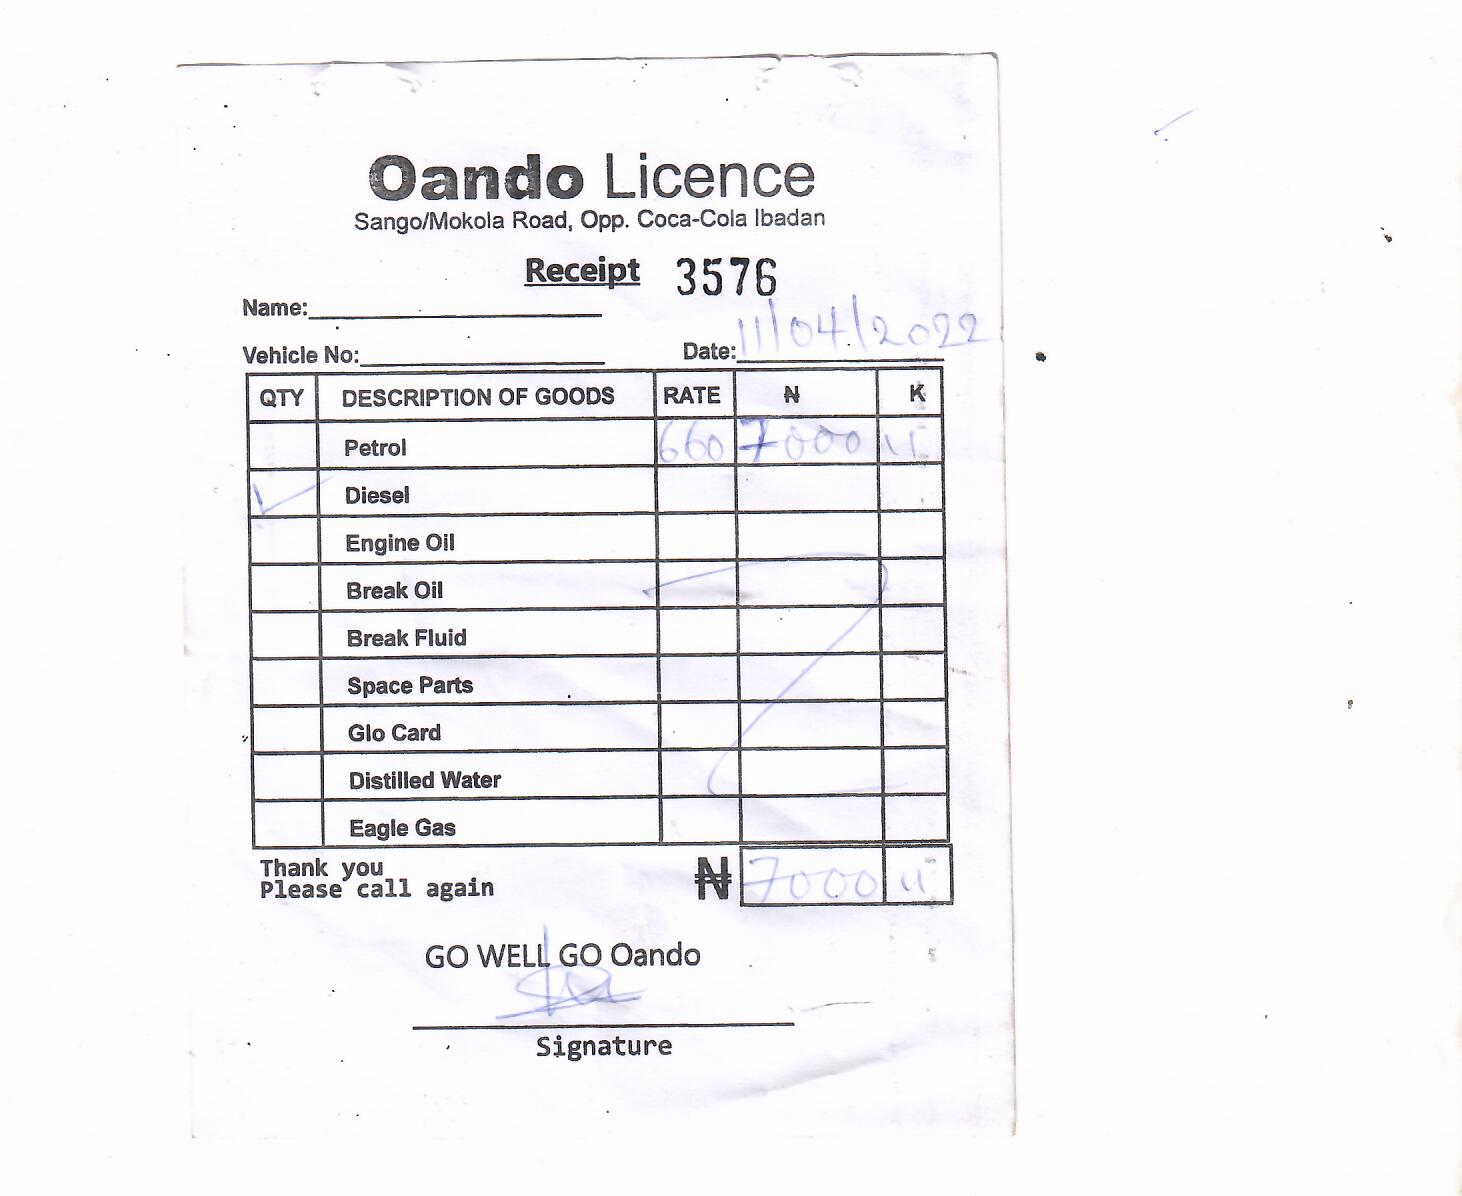 Oando Licence
Sango/Mokola Road, Opp. Coca-Cola Ibadan
Receipt 3576
Name:
Vehicle No: Date: 11/04/2022
QTY DESCRIPTION OF GOODS RATE ₦ K
Petrol 660 7000
Diesel
Engine Oil
Break Oil
Break Fluid
Space Parts
Glo Card
Distilled Water
Eagle Gas
Thank you
Please call again ₦ 7000
GO WELL GO Oando
Signature